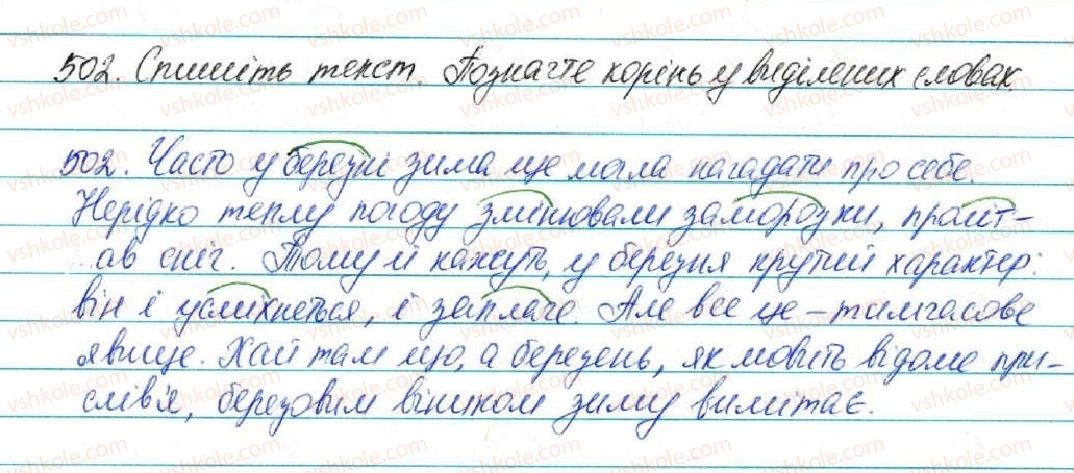 502. Спишіть текст. Позначте корінь у виділених словах.
502. Часто у березні зима ще могла нагадати про себе.
Нерідко теплу погоду змінювали заморозки, проліт-
ав сніг. Тому й кажуть, у березня крутий характер:
він і усміхнеться, і заплаче. Але все це – тимчасове
явище. Хай там що, а березень, як мовить відоме при-
слів'я, березовим віником зиму вимітає.